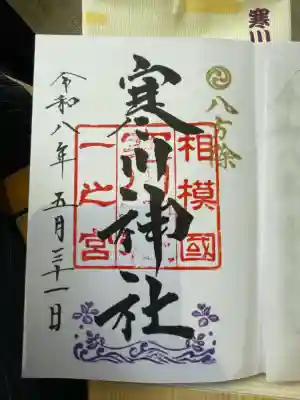 寒川
八方除
相模國
一之宮
寒川神社
令和八年 五月三十一日